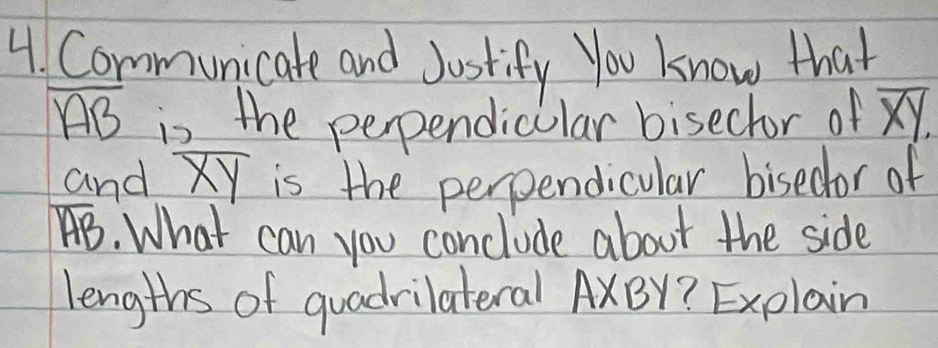 4. Communicate and Justify You know that
A̅B̅ is the perpendicular bisector of X̅Y̅.
and X̅Y̅ is the perpendicular bisector of
A̅B̅. What can you conclude about the side
lengths of quadrilateral AXBY? Explain